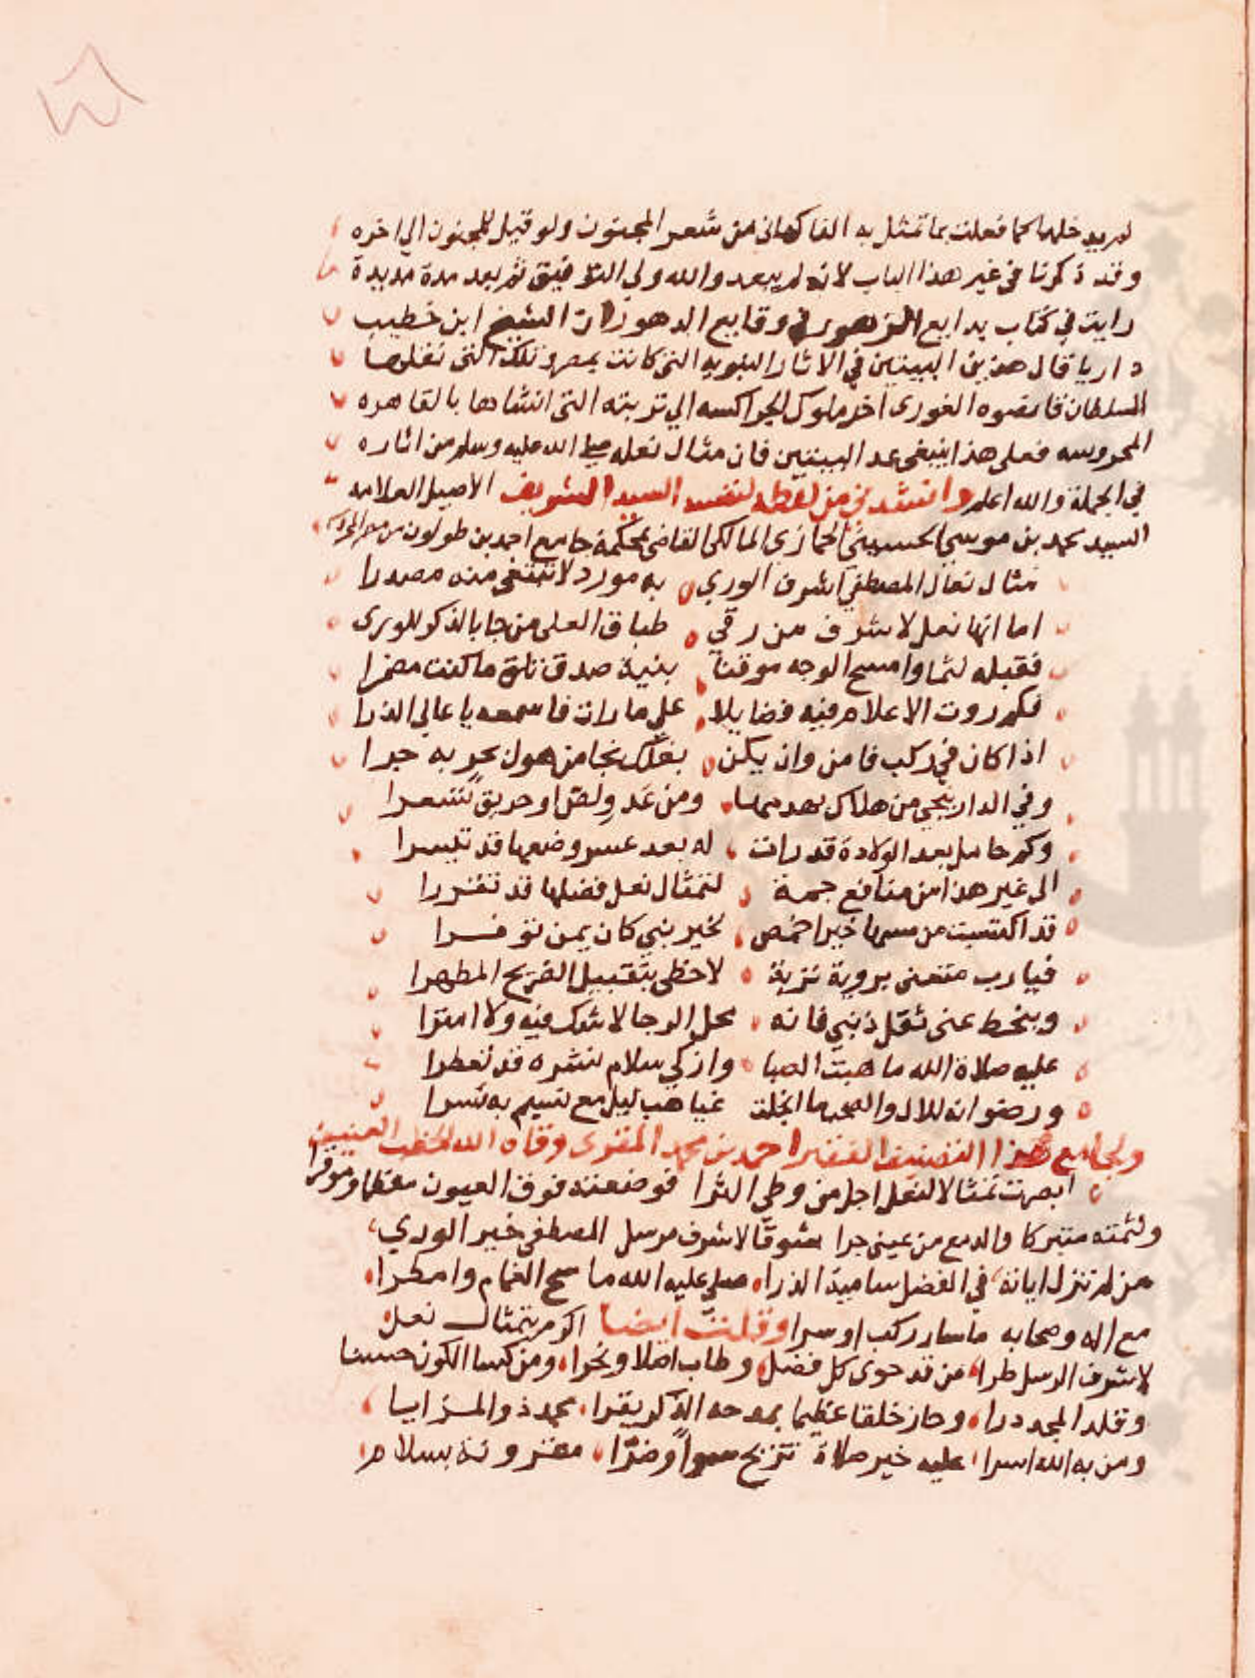 لم يدخلها كما فعلت بما تمثل به الفاكهاني من شعر المجنون ولو قيل للمجنون الي اخره
وقد ذكرنا في غير هذا الباب لانه لم يبعد والله ولي التوفيق ثم بعد مدة مديدة
رايت في كتاب بدايع الزهور في وقايع الدهور ان الشيخ ابن خطيب
داريا قال هذين البيتين في الاثار النبويه التي كانت بمصر وتلك التي نقلها
السلطان قانصوه الغوري اخر ملوك الجراكسه الي تربته التي انشاها بالقاهره
المحروسه فعلي هذا ينبغي عد البيتين فان مثال نعله صلي الله عليه وسلم من اثاره
في الجملة والله اعلم وانشدني من لفظه لنفسه السيد الشريف الاصيل العلامه
السيد محمد بن موسي الحسيني الجمازي المالكي القاضي بمحكمة جامع احمد بن طولون من مصر
مثال نعال المصطفي اشرف الوري به مورد لا تبتغي منه مصدرا
اما انها نعل لاشرف من رقي طباق العلي من جا بالذكر للوري
فقبله لثما وامسح الوجه موقنا بنية صدق تلق ما كنت مضمرا
فكم روت الاعلام فيه فضايلا علي ما رات فاسمعه يا عالي الذرا
اذا كان في ركب فامن وان يكن بفلك نجا من هول بحر به جرا
وفي الدار ينجي من هلاك بهدمها ومن غدر ولص او حريق تسعرا
وكم حامل بعد الولادة قد رات له بعد عسر وضعها قد تيسرا
الي غير هذا من منافع جمة لتمثال نعل فضلها قد تقررا
قد اكتسبت من مسها خير اخمص لخير نبي كان بمن توفرا
فيارب متعني بروية تربة لاحظي بتقبيل الضريح المطهرا
وينحط عني ثقل ذنبي فانه محل الرجا لا شك فيه ولا امترا
عليه صلاة الله ما هبت الصبا وازكي سلام نشره قد تعطرا
ورضوانه للال والصحب ما انجلت غياهب ليل مع نسيم به سرا
ولجامع هذا التصنيف الفقير احمد بن محمد المقري وقاه الله
ابصرت تمثالا لنعل اجل من وطي الثرا فوضعته فوق العيون معظما وموقرا
ولثمته متبركا والدمع من عيني جرا شوقا لاشرف مرسل المصطفي خير الوري
من لم تزل اياته في الفضل سامية الذرا صلي عليه الله ما سح الغمام وامطرا
مع اله وصحابه ما سار ركب او سرا وقلت ايضا اكرم بتمثال نعل
لاشرف الرسل طرا من قد حوي كل فضل وطاب اصلا ونجرا ومن كسا الكون حسنا
وقلد المجد درا وحاز خلقا عظيما بمدحه الذكر يقرا محمد ذو المزايا
ومن به الله اسرا عليه خير صلاة تزيح سوءا وضرا مقرونة بسلام